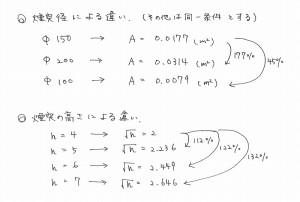 ◎ 煙突径による違い. (その他は同一条件とする)
Φ 150 → A = 0.0177 (m²)
Φ 200 → A = 0.0314 (m²)
Φ 100 → A = 0.0079 (m²)
177% 45%
◎ 煙突の高さによる違い.
h = 4 → √h = 2
h = 5 → √h = 2.236
h = 6 → √h = 2.449
h = 7 → √h = 2.646
112% 122% 132%